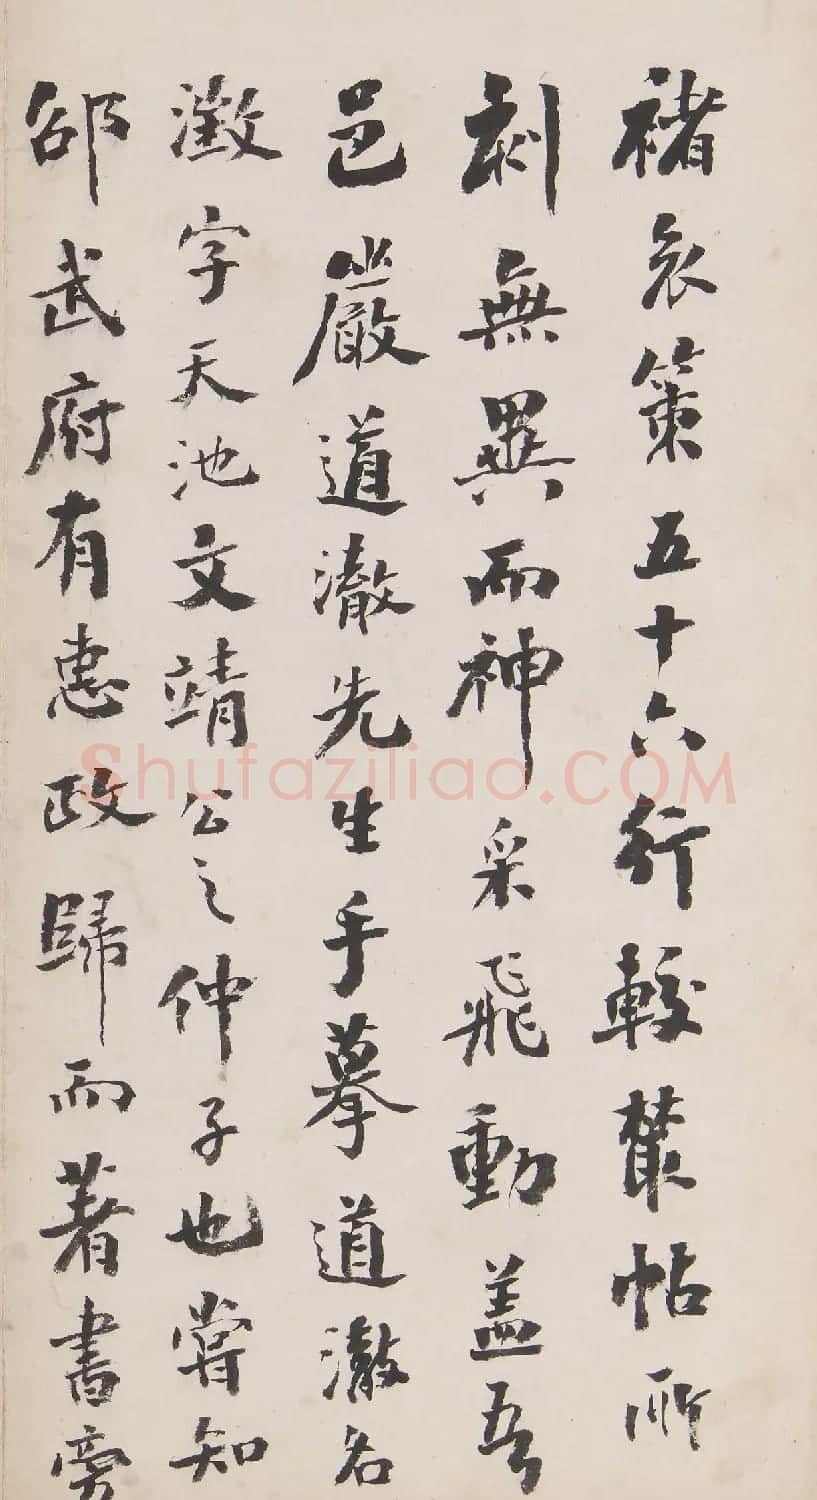 褚哀策五十六行較叢帖所
刻無異而神采飛動蓋吾
邑嚴道澈先生手摹道澈名
澂字天池文靖公之仲子也嘗知
邵武府有惠政歸而著書旁
Shufaziliao.COM